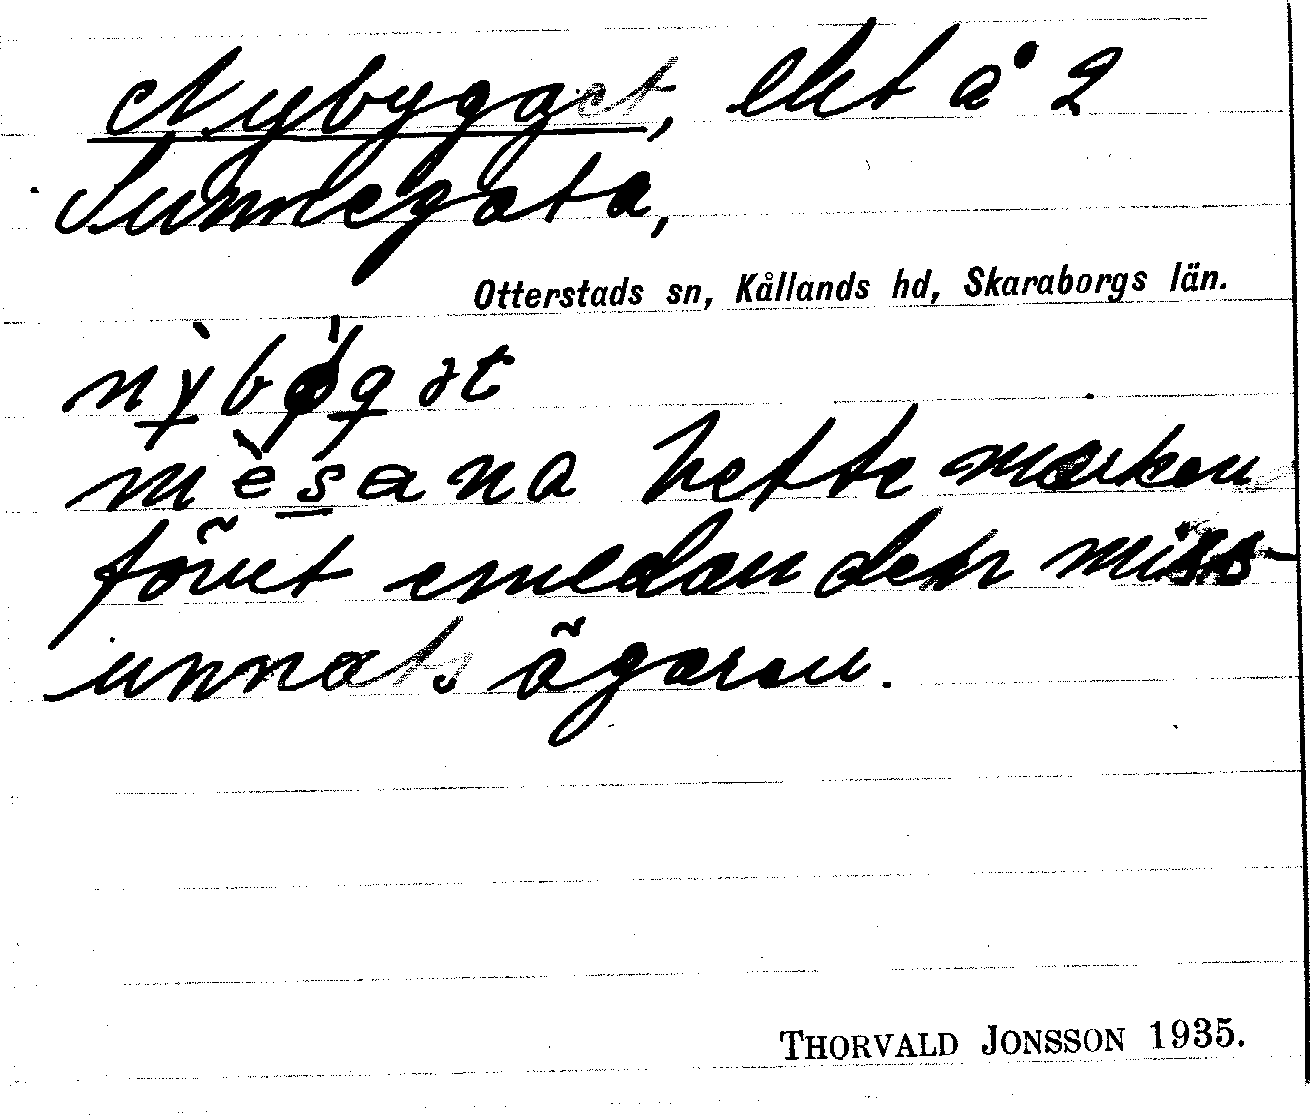 Nybygget, lht å 2
Sunnegata,
Otterstads sn, Kållands hd, Skaraborgs län.
nỳbø̀gət
mèsana hette marken
förut emedan den miss-
unnats ägaren.
THORVALD JONSSON 1935.